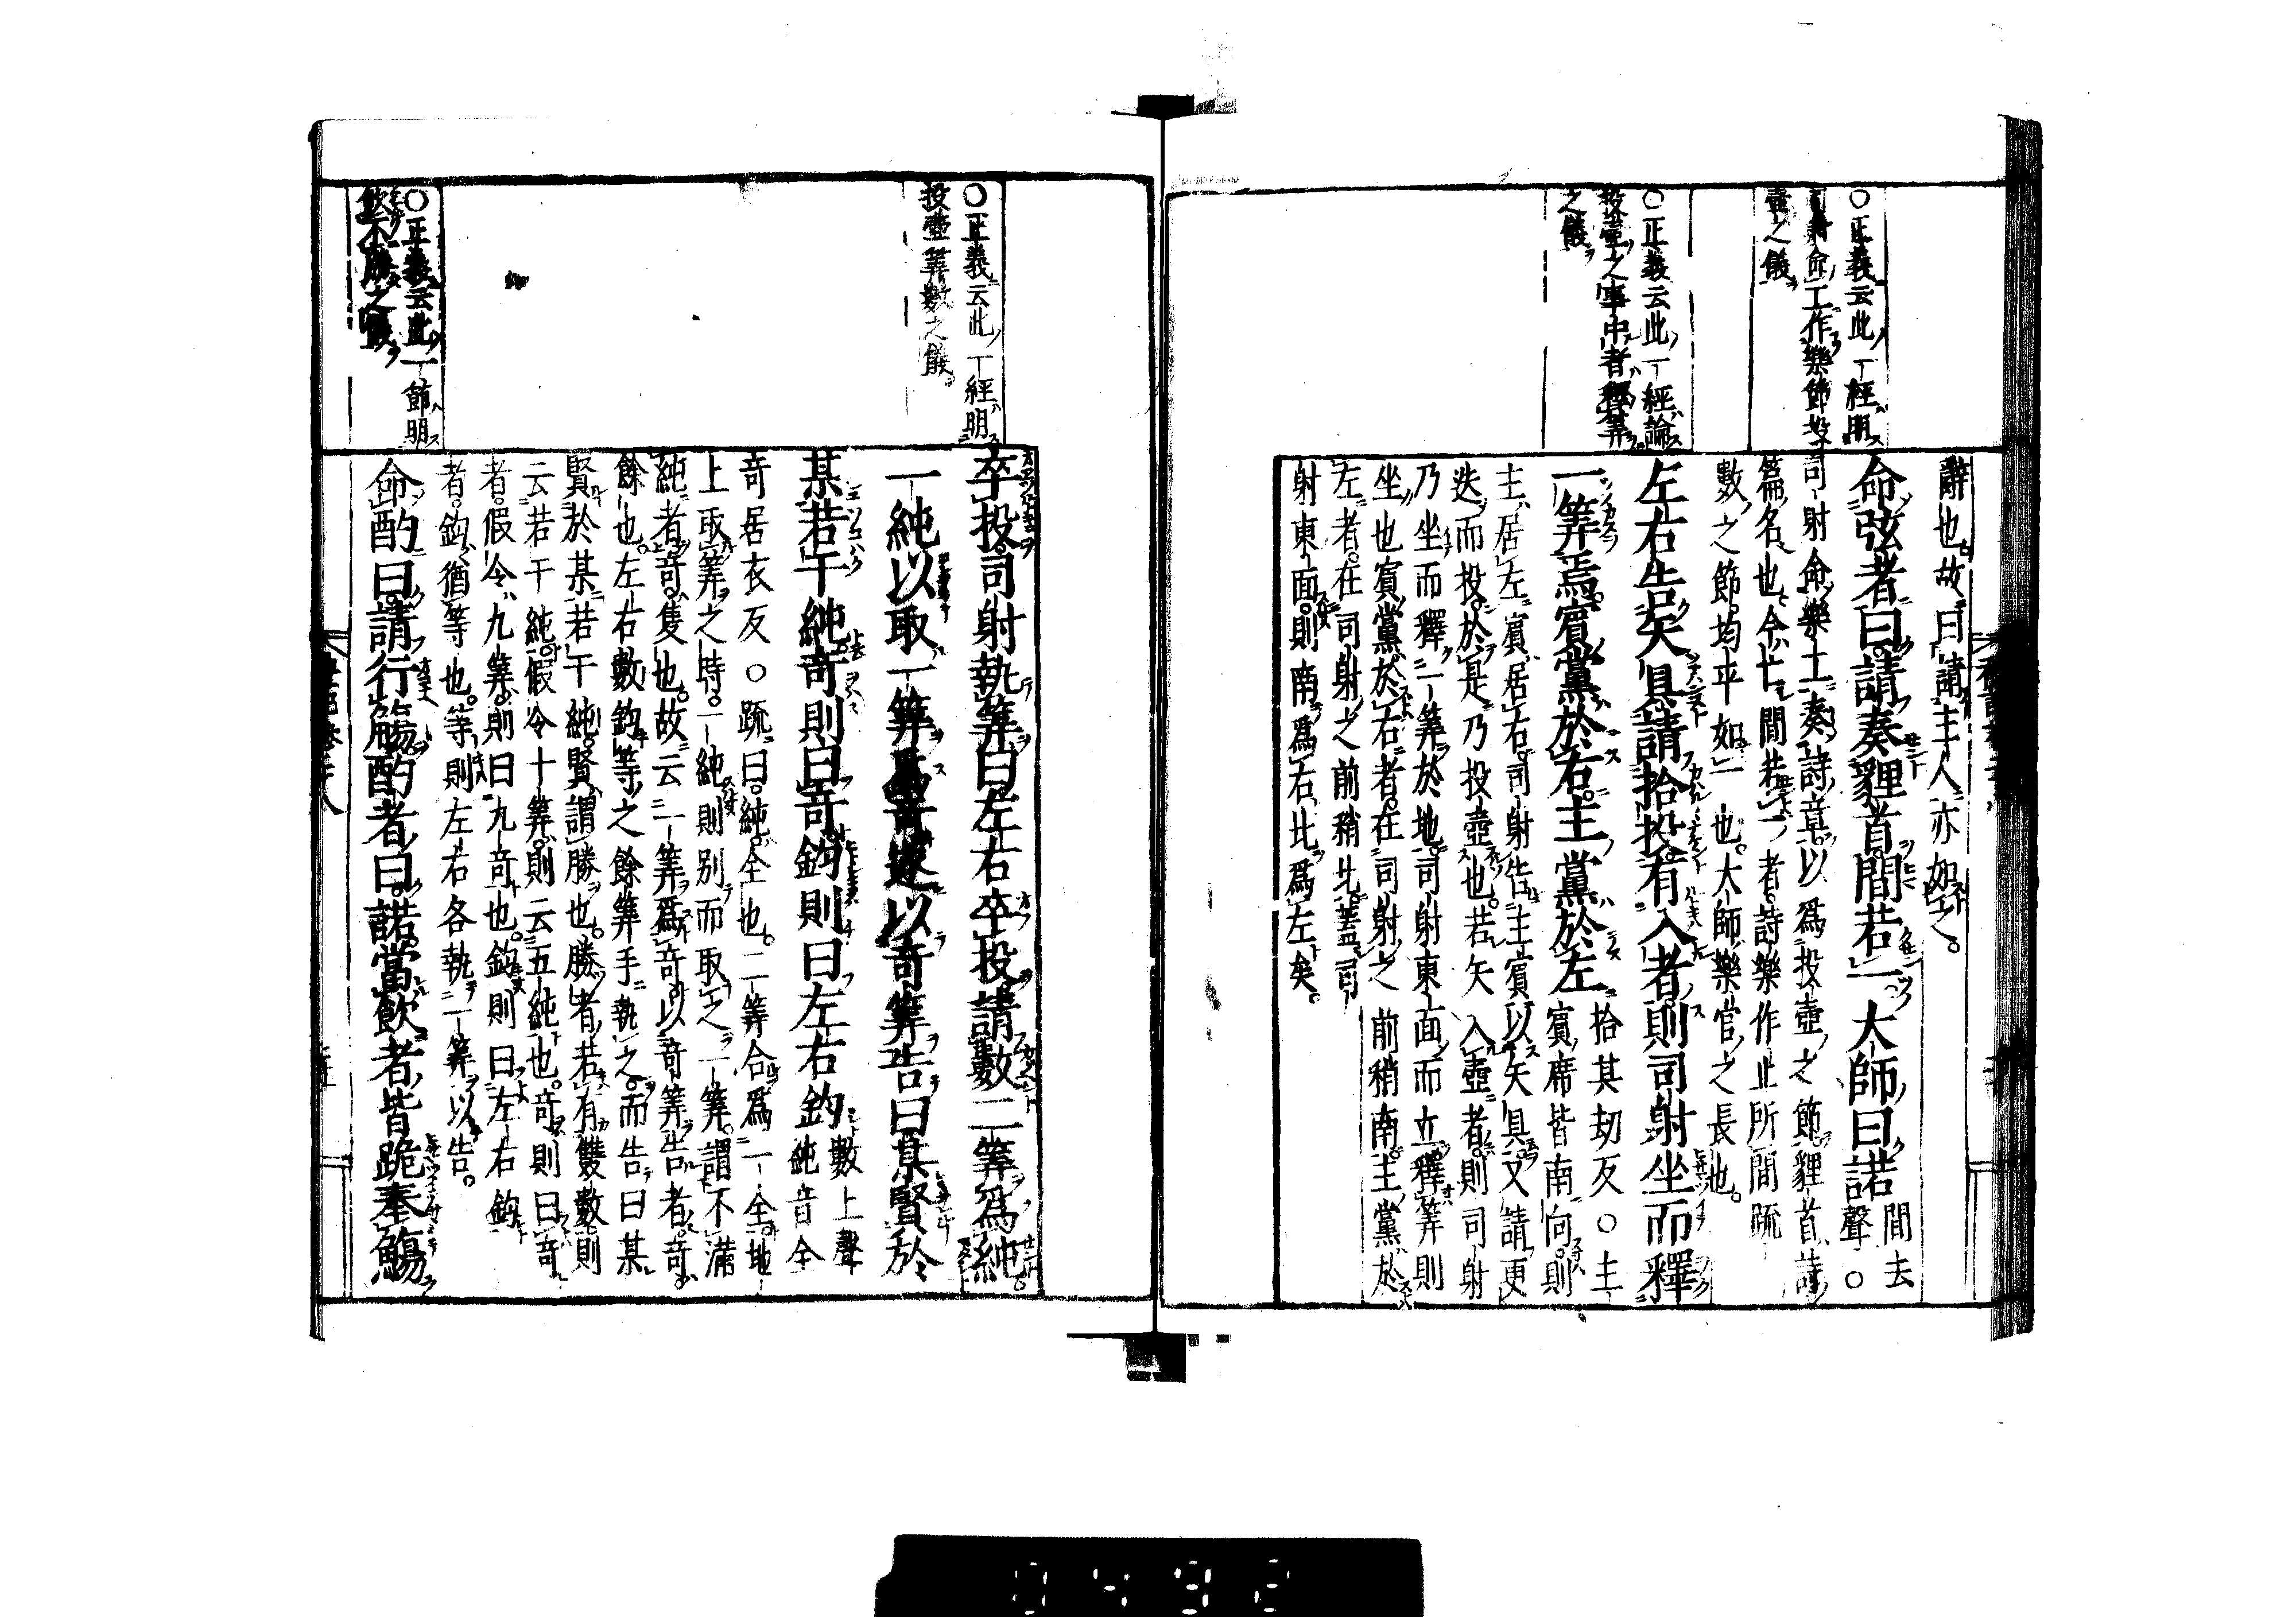 辭也故曰請主人亦如之。
○正義云此一經明
司射命工作樂節投
壺之儀
命弦者曰請奏貍首間若一大師曰諾 間去
聲○
司射命樂工奏詩章以爲投壺之節貍首詩
篇名也今亡間若一者詩樂作止所間疏
數之節均平如一也大師樂官之長也。
○正義云此一經論
投壺之事中者釋筭
之儀
左右告矢具請拾投有入者則司射坐而釋
一筭焉賓黨於右主黨於左 拾其劫反○主
賓席皆南向則
主居左賓居右司射告主賓以矢具又請更
迭而投於是乃投壺也若矢入壺者則司射
乃坐而釋一筭於地司射東面而立釋筭則
坐也賓黨於右者在司射之前稍南主黨於
左者在司射之前稍北蓋司
射東面則南爲右北爲左矣。
○正義云此一經明
投壺筭數之儀
卒投司射執筭曰左右卒投請數二筭爲純
一純以取一筭爲奇遂以奇筭告曰某賢於
某若干純奇則曰奇鈞則曰左右鈞 數上聲
純音全
奇居衣反○疏曰純全也二筭合爲一全地
上取筭之時一純則別而取之一筭謂不滿
純者奇隻也故云一筭爲奇以奇筭告者奇
餘也左右數鈞等之餘筭手執之而告曰某
賢於某若干純賢謂勝也勝者若有雙數則
云若干純假令十筭則云五純也奇則曰奇
者假令九筭則曰九奇也鈞則曰左右鈞
者鈞猶等也等則左右各執一筭以告。
○正義云此一節明
飲不勝之儀
命酌曰請行觴酌者曰諾當飲者皆跪奉觴
0492